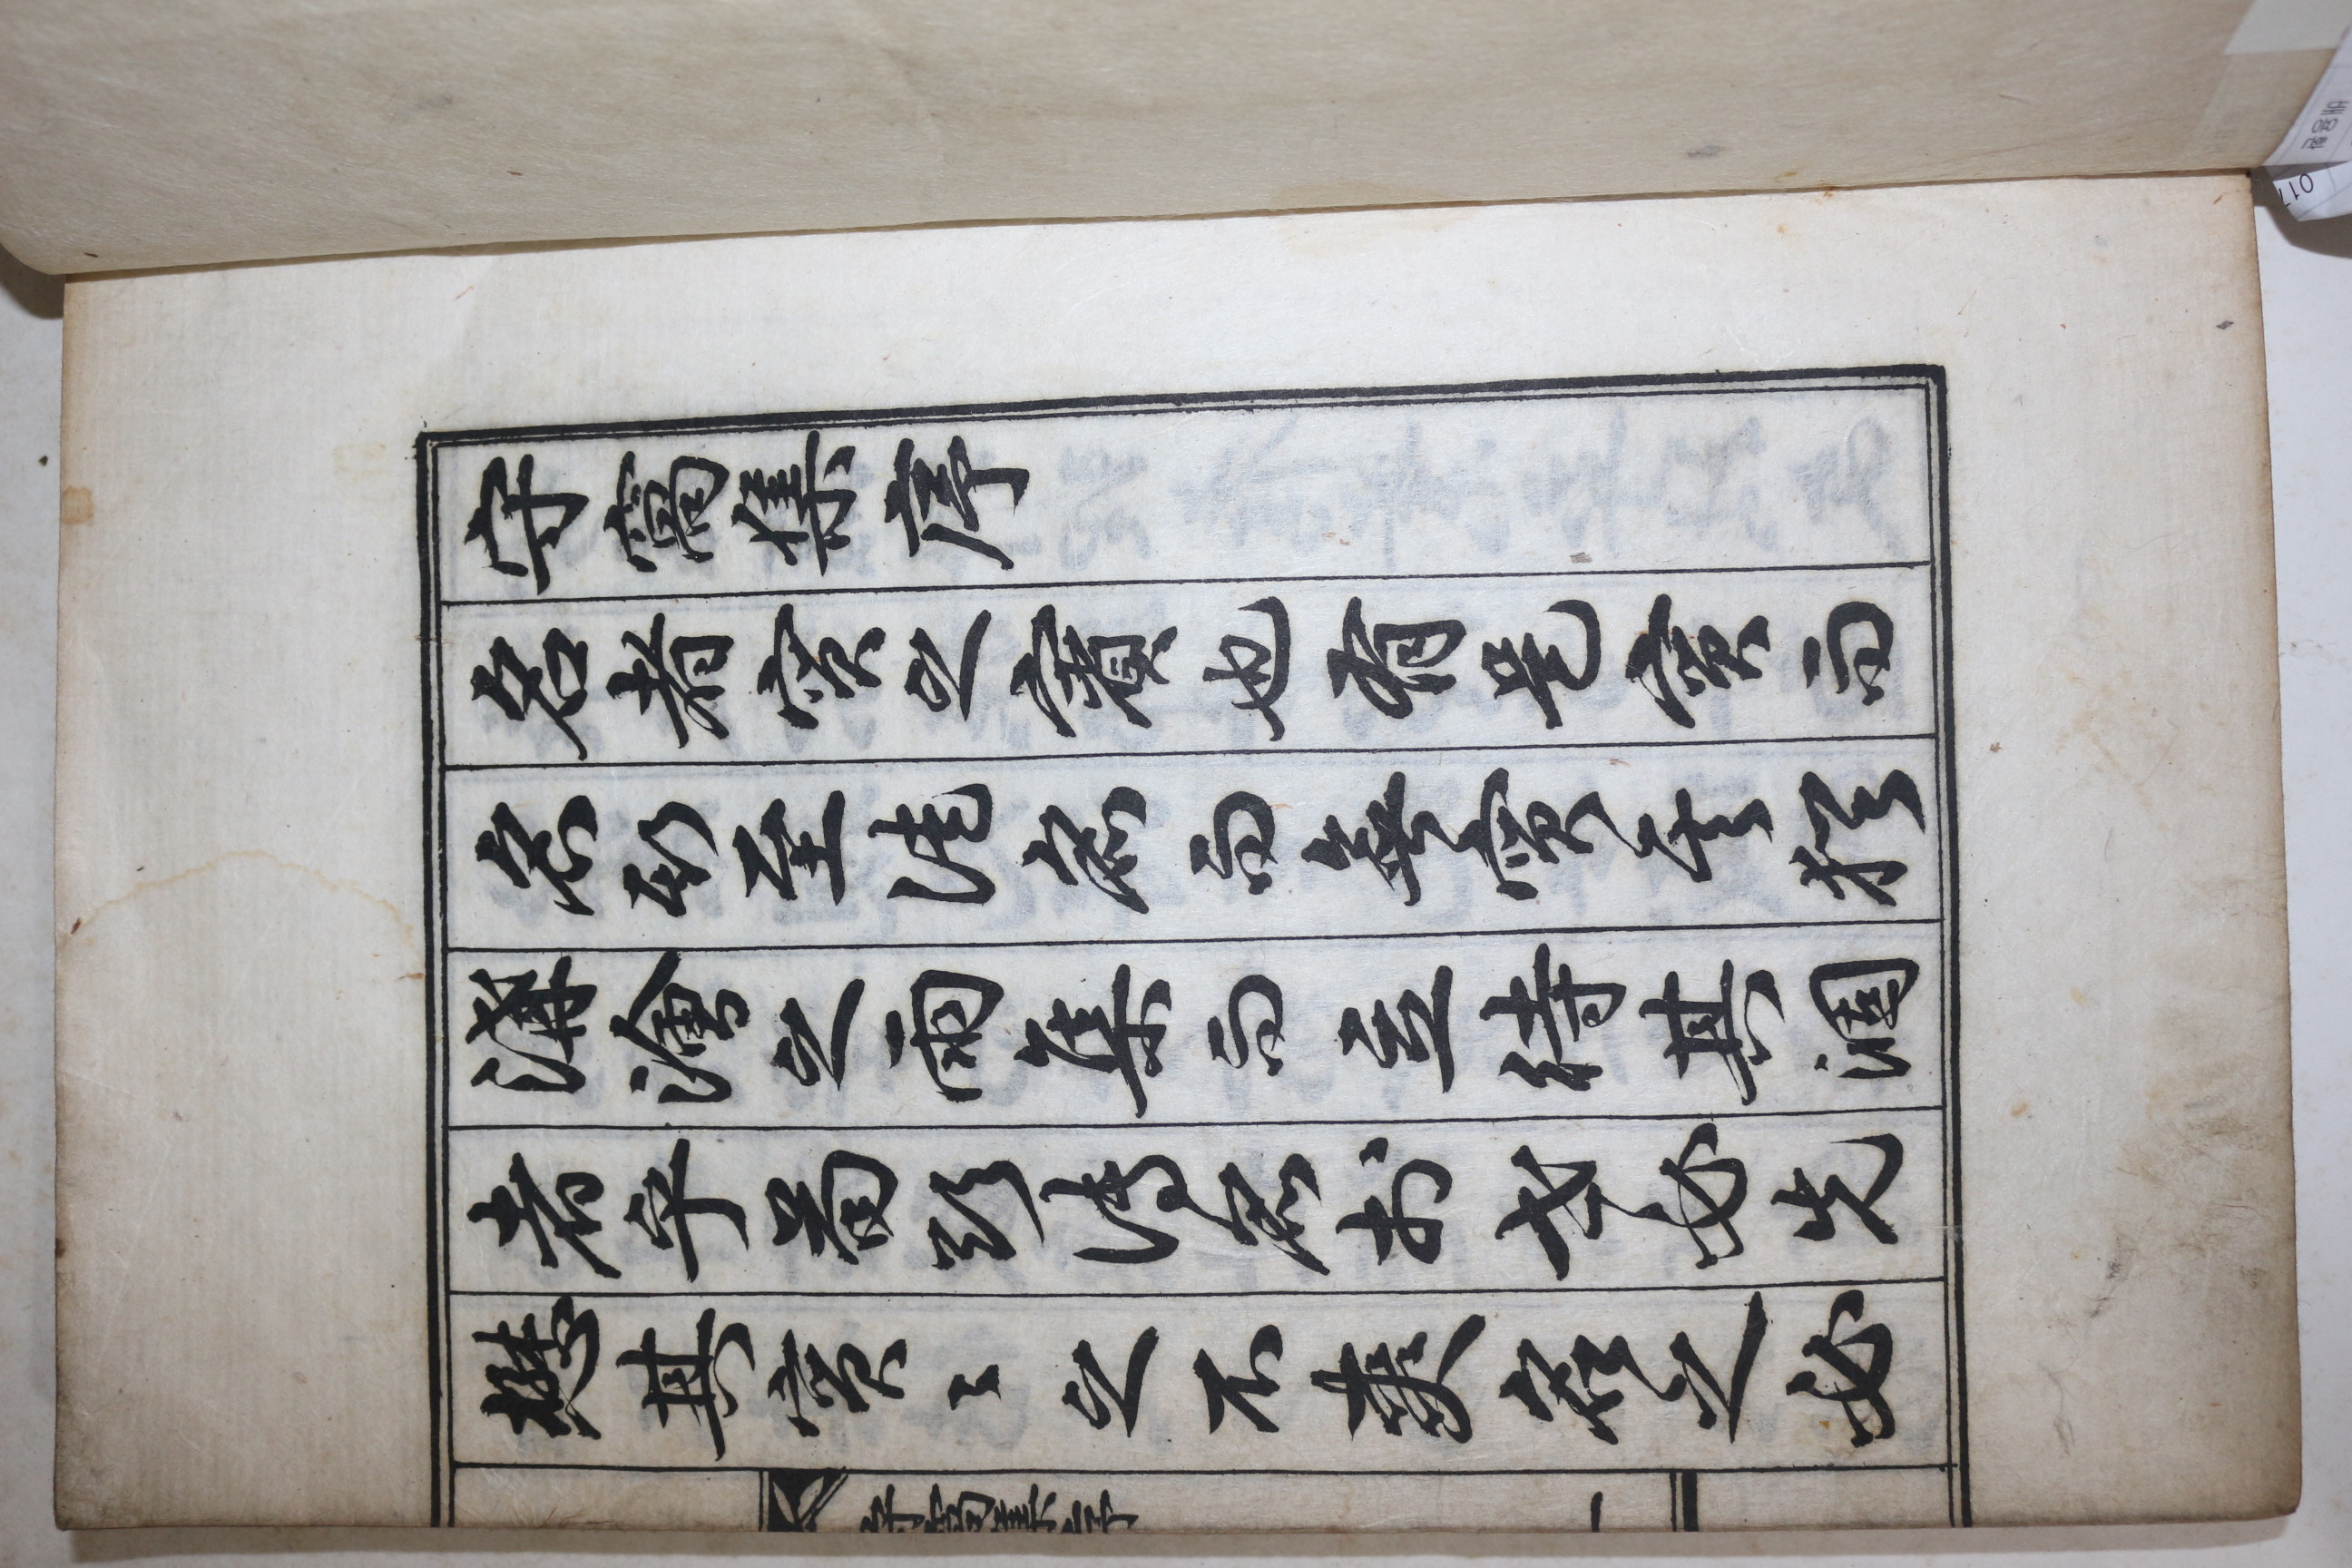 守窩集序
名者實之賓也有是實而
名斯至徒名而無實其猶
溝澮之雨集而立待其涸
者乎苟欲傳名於世必先
懋其實〻之不爽名之必
守窩集序
一